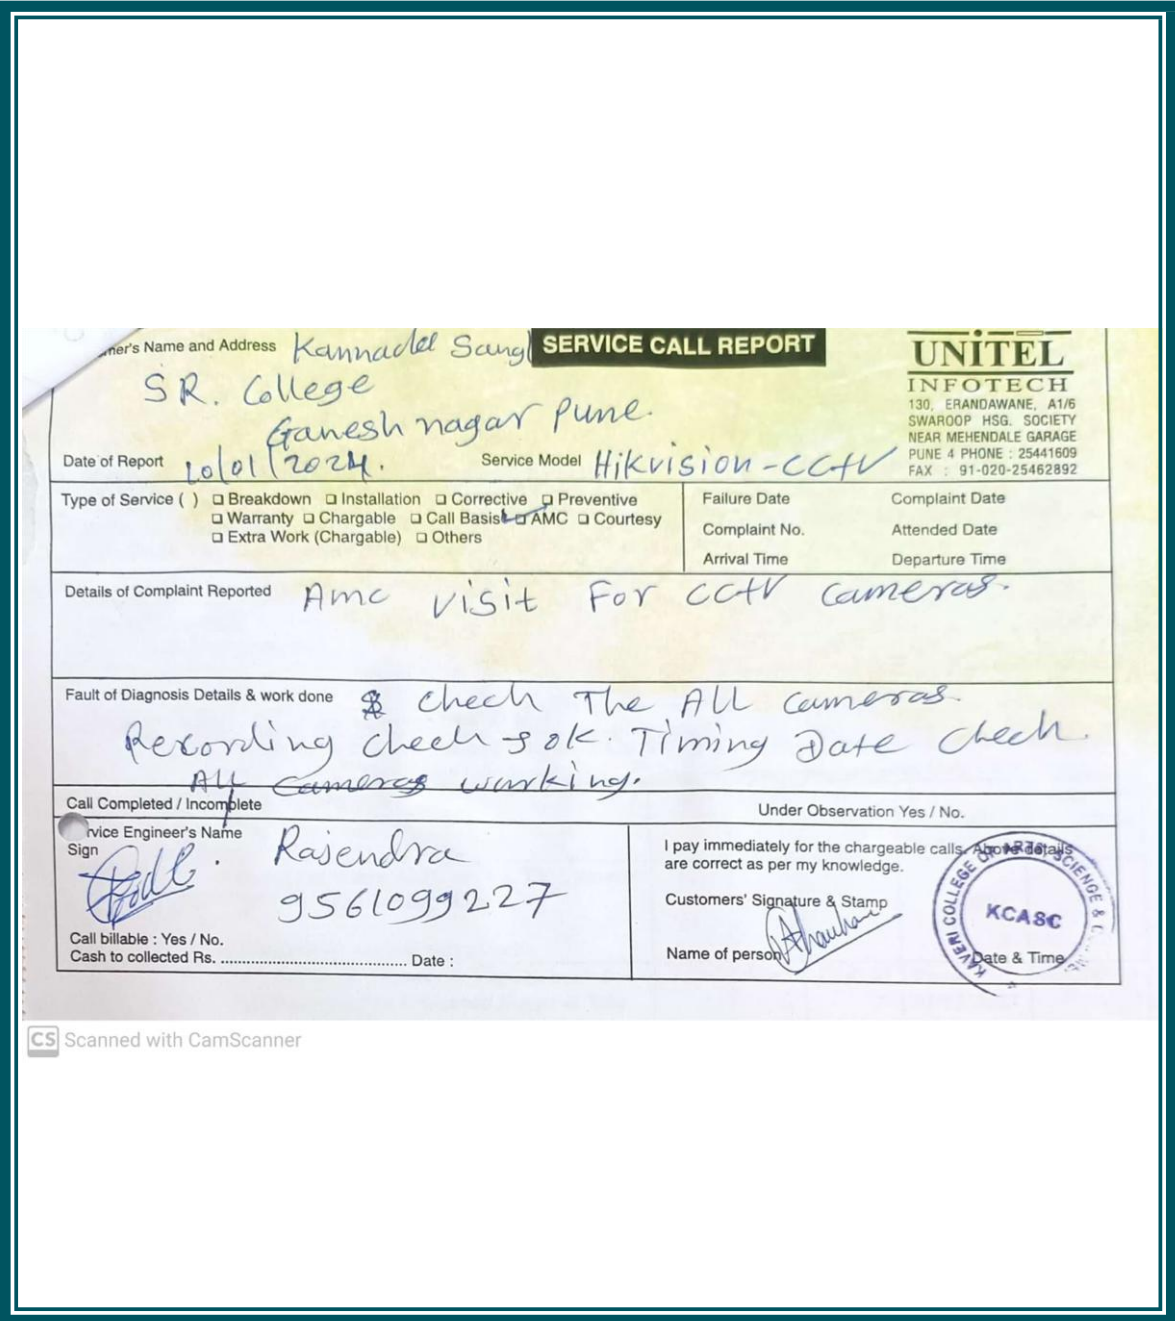 ner's Name and Address Kannadd Sangl SERVICE CALL REPORT
SR. College
Ganesh nagar Pune.
UNiTEL
INFOTECH
130, ERANDAWANE, A1/6
SWAROOP HSG. SOCIETY
NEAR MEHENDALE GARAGE
PUNE 4 PHONE : 25441609
FAX : 91-020-25462892
Date of Report 10/01/2024. Service Model Hikvision-CCtV
Type of Service ( ) Breakdown Installation Corrective Preventive
Warranty Chargable Call Basis AMC Courtesy
Extra Work (Chargable) Others
Failure Date Complaint Date
Complaint No. Attended Date
Arrival Time Departure Time
Details of Complaint Reported Amc visit For cctv cameras.
Fault of Diagnosis Details & work done chech The ALL cameras.
Recording chech ok. Timing Date chech.
ALL cameras working.
Call Completed / Incomplete Under Observation Yes / No.
rvice Engineer's Name Rajendra
Sign
9561099227
Call billable : Yes / No.
Cash to collected Rs. .......................................... Date :
I pay immediately for the chargeable calls. Above details
are correct as per my knowledge.
Customers' Signature & Stamp
Name of person
Date & Time
KAVERI COLLEGE OF ARTS, SCIENCE &
KCASC
CS Scanned with CamScanner